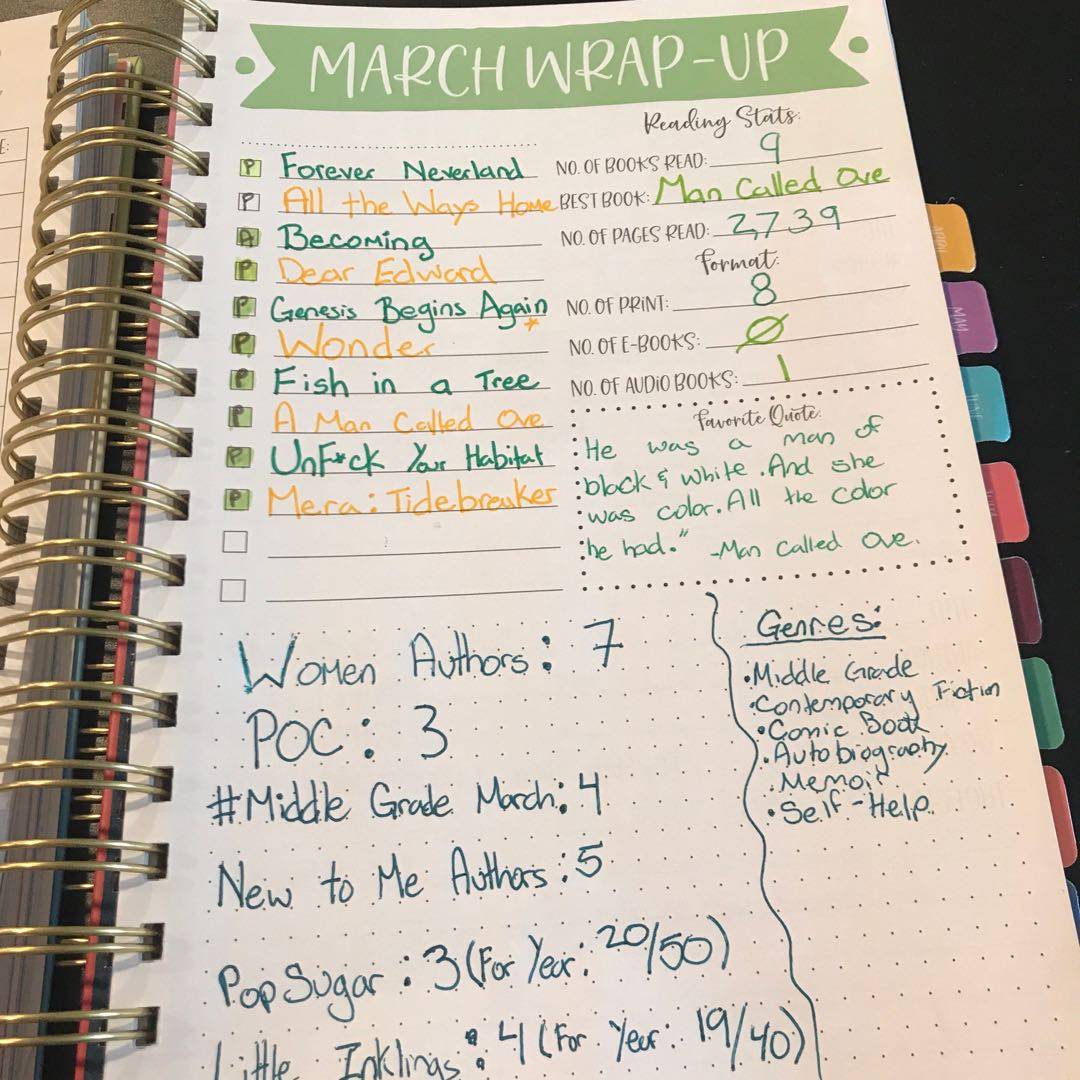 MARCH WRAP-UP
Reading Stats:
P Forever Neverland
P All the Ways Home
A Becoming
P Dear Edward
P Genesis Begins Again
P Wonder
P Fish in a Tree
P A Man Called Ove
P UnF*ck Your Habitat
P Mera: Tidebreaker
NO. OF BOOKS READ: 9
BEST BOOK: Man Called Ove
NO. OF PAGES READ: 2,739
Format:
NO. OF PRINT: 8
NO. OF E-BOOKS: Ø
NO. OF AUDIO BOOKS: 1
Favorite Quote:
He was a man of
black & white. And she
was color. All the color
he had." -Man Called Ove.
Women Authors: 7
POC: 3
#Middle Grade March: 4
New to Me Authors: 5
PopSugar: 3 (For Year: 20/50)
Little Inklings: 4 (For Year: 19/40)
Genres:
•Middle Grade
•Contemporary Fiction
•Comic Book
•Autobiography
Memoir
•Self-Help
E:
APRIL
MAY
JUNE